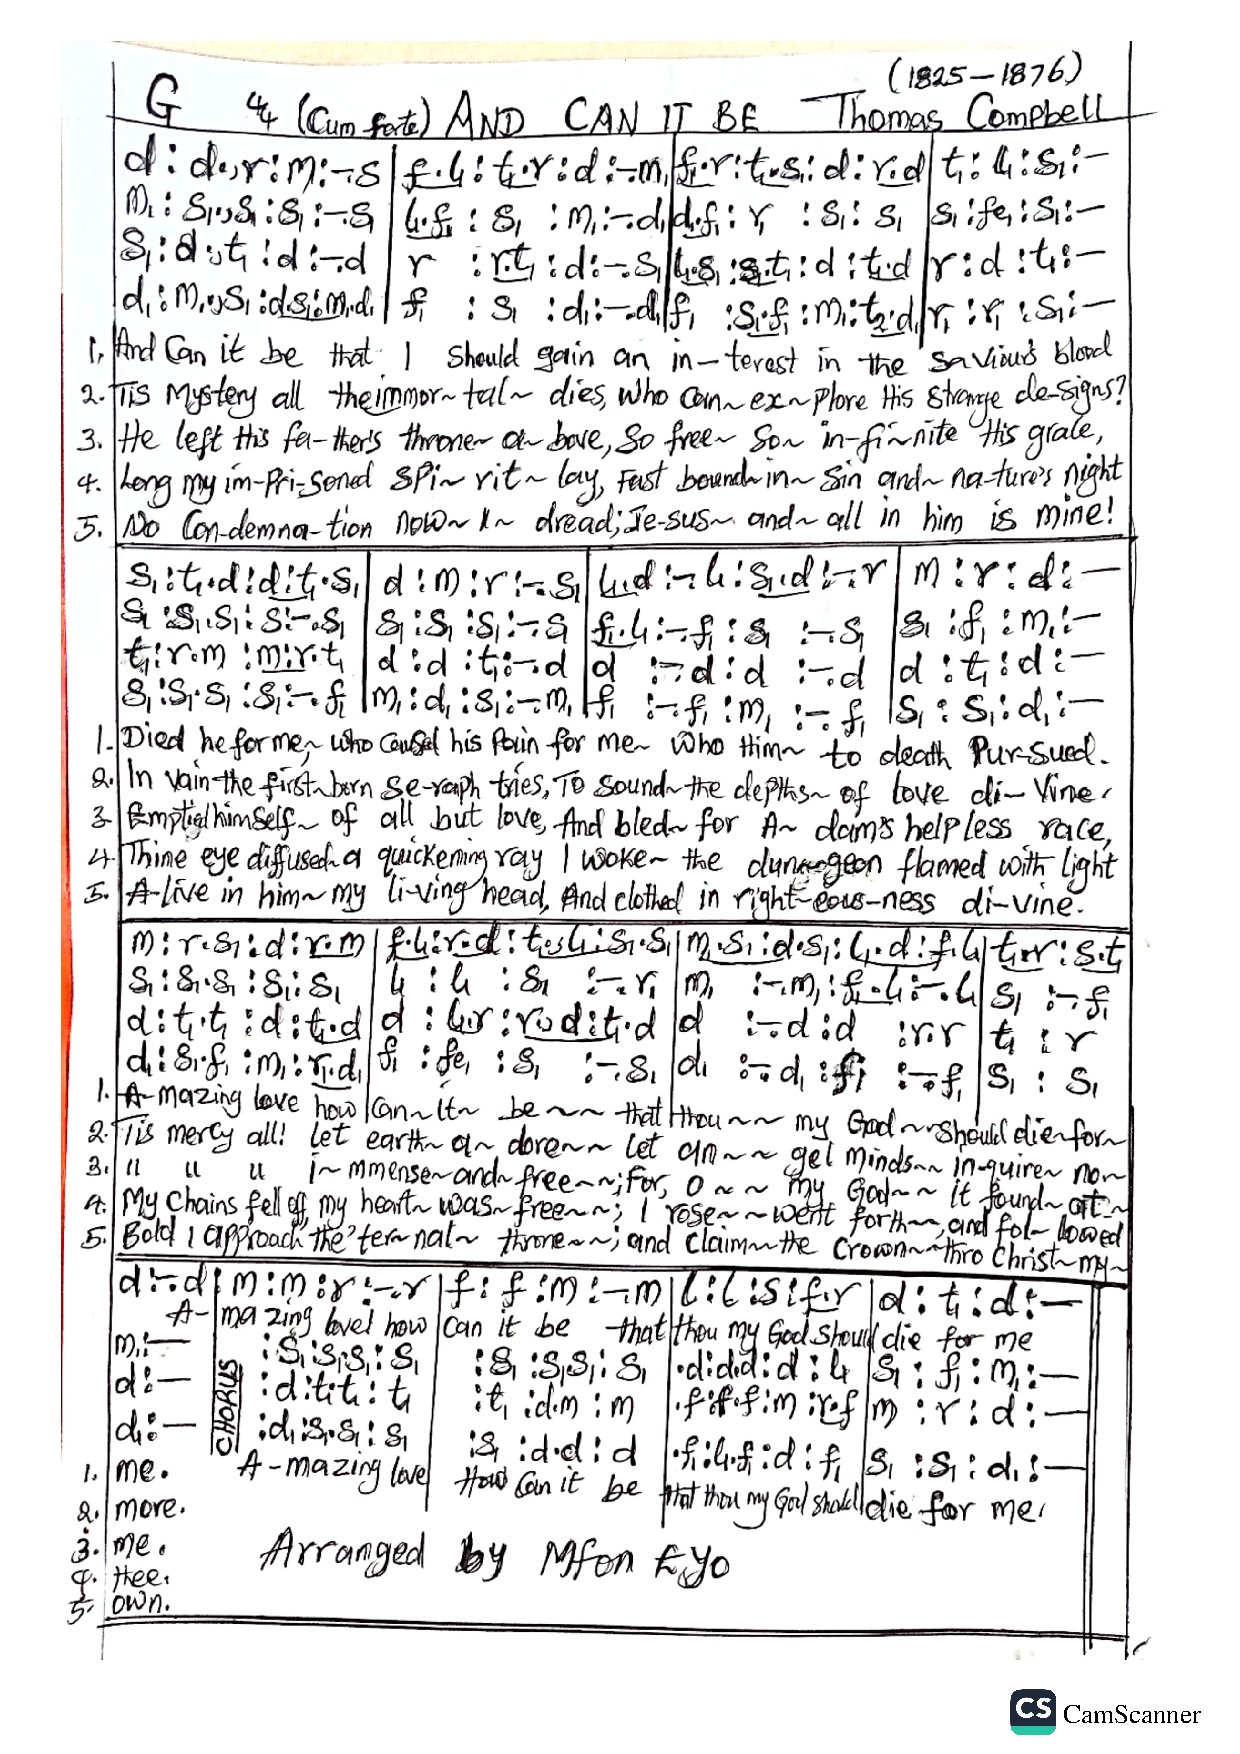 (1825-1876)
G 4/4 (Cum forte) AND CAN IT BE Thomas Campbell
d : d.,r : m : -.s | f.l₁ : t₁.r : d : -.m₁ | f₁.r : t₁.s₁ : d : r.d | t₁ : l₁ : s₁ : —
m₁ : s₁.,s₁ : s₁ : -.s₁ | l₁.f₁ : s₁ : m₁ : -.d₁ | d₁.f₁ : r₁ : s₁ : s₁ | s₁ : fe₁ : s₁ : —
s₁ : d.,t₁ : d : -.d | r : r.t₁ : d : -.s₁ | l₁.s₁ : s₁.t₁ : d : t₁.d | r : d : t₁ : —
d₁ : m₁.,s₁ : d.s₁ : m₁.d₁ | f₁ : s₁ : d₁ : -.d₁ | f₁ : s₁.f₁ : m₁ : t₂.d₁ | r₁ : r₁ : s₁ : —
1, And Can it be that I should gain an in-terest in the saviour's blood
2. Tis Mystery all the immor~ tal~ dies, who can~ ex~ plore His strange de-signs?
3. He left His fa-ther's throne~ a~ bove, So free~ So~ in-fi~nite His grace,
4. Long my im-pri-soned spi~ rit~ lay, Fast bound~in~ sin and~ na-ture's night
5. No Con-demna-tion now~ I~ dread; Je-sus~ and~ all in him is mine!
s₁ : t₁.d : d : t₁.s₁ | d : m : r : -.s₁ | l₁.d : -.l₁ : s₁.d : -.r | m : r : d : —
s₁ : s₁.s₁ : s₁ : -.s₁ | s₁ : s₁ : s₁ : -.s | f₁.l₁ : -.f₁ : s₁ : -.s₁ | s₁ : f₁ : m₁ : —
t₁ : r.m : m : r.t₁ | d : d : t₁ : -.d | d : -.d : d : -.d | d : t₁ : d : —
s₁ : s₁.s₁ : s₁ : -.f₁ | m₁ : d₁ : s₁ : -.m₁ | f₁ : -.f₁ : m₁ : -.f₁ | s₁ : s₁ : d₁ : —
1. Died he for me~ who caused his pain for me~ Who Him~ to death pur-sued.
2. In vain-the first~born Se-raph tries, To sound~the depths~ of love di- vine.
3. Emptied himself~ of all but love, And bled~ for A~ dam's helpless race,
4. Thine eye diffused~a quickening ray I woke~ the dungeon flamed with light
5. A-live in him~ my li-ving head, And clothed in right-eous-ness di-vine.
m : r.s₁ : d : r.m | f.l₁ : r.d : t₁.,l₁ : s₁.s₁ | m₁.s₁ : d.s₁ : l₁.d : f.l₁ | t₁.r : s.t₁
s₁ : s₁.s₁ : s₁ : s₁ | l₁ : l₁ : s₁ : -.r₁ | m₁ : -.m₁ : f₁.l₁ : -.l₁ | s₁ : -.f₁
d : t₁.t₁ : d : t₁.d | d : l₁.r : r.,d : t₁.d | d : -.d : d : r.r | t₁ : r
d₁ : s₁.f₁ : m₁ : r₁.d₁ | f₁ : fe₁ : s₁ : -.s₁ | d₁ : -.d₁ : f₁ : -.f₁ | s₁ : s₁
1. A-mazing love how can~it~ be~~ that thou~~ my God~~should die~for~
2. Tis mercy all! let earth~ a~ dore~~ let an~~ gel minds~~ in-quire~ no~
3. " " " i~ mmense~and~free~~; For, O~~ my God~~ it found~ out~
4. My chains fell off, my heart~ was~free~~; I rose~~went forth~~, and fol~ lowed
5. Bold I approach the'ter~nal~ throne~~; and claim~the crown~~thro Christ~my~
d : -.d | m : m : r : -.r | f : f : m : -.m | l : l : s : f.r | d : t₁ : d : —
A- mazing love! how can it be that thou my God should die for me
m₁ : — CHORUS : s₁ : s₁.s₁ : s₁ | : s₁ : s₁.s₁ : s₁ | .d : d.d : d : l₁ | s₁ : f₁ : m₁ : —
d : — : d : t₁.t₁ : t₁ | : t₁ : d.m : m | .f : f.f : m : r.f | m : r : d : —
d₁ : — : d₁ : s₁.s₁ : s₁ | : s₁ : d.d : d | .f₁ : l₁.f₁ : d : f₁ | s₁ : s₁ : d₁ : —
1. me. A-mazing love How can it be that thou my God should die for me.
2. more.
3. me. Arranged by Mfon Eyo
4. thee.
5. own.
CS CamScanner